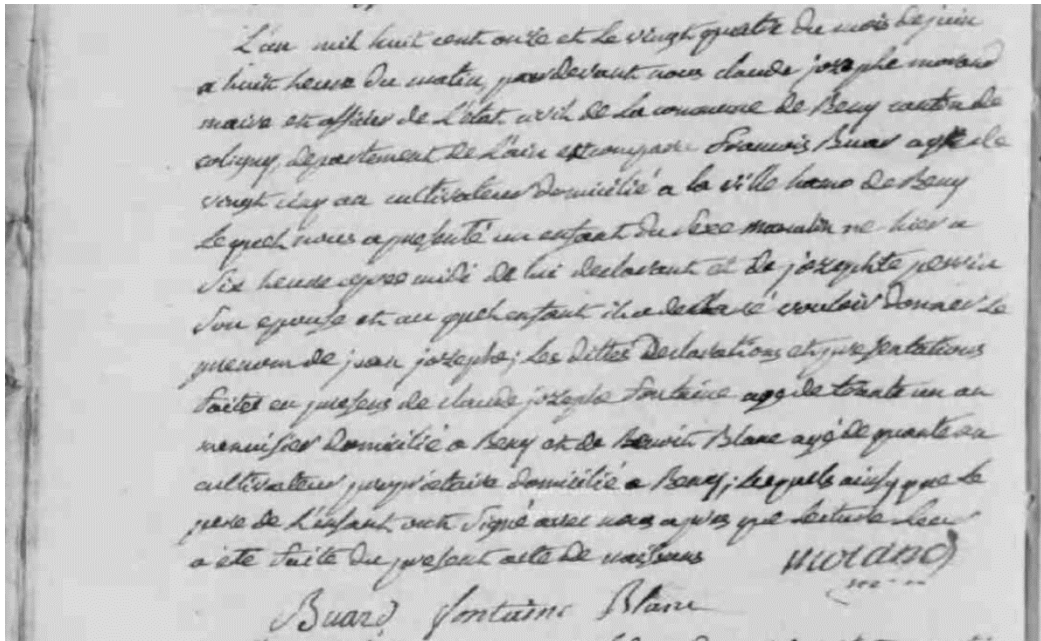 L'an mil huit cent onze et le vingt quatre du mois de juin
a huit heure du matin, pardevant nous claude jozephe morand
maire et officier de L'état civil de la commune de Beny canton de
coligny, departement de L'ain est comparu françois Buar agé de
vingt cinq an cultivateur domicilié a la ville hamo de Beny
Lequel nous a presenté un enfant du sexe masculin né hier a
six heure apres midi de lui declarant et de jozephte perrin
son epouse et au quel enfant il a declaré vouloir donner le
prenom de jean jozephe; les dittes Declarations et presentations
faites en presens de claude jozephe fontaine agé de trante un an
menuisier domicilié a Beny et de Benoit Blanc agé de quante an
cultivateur propriétaire domicilié a Beny; lesquels ainsy que le
pere de L'enfant ont signé avec nous apres que lecture leur
a été faite du present acte de naissans morand
Buard fontaine Blanc